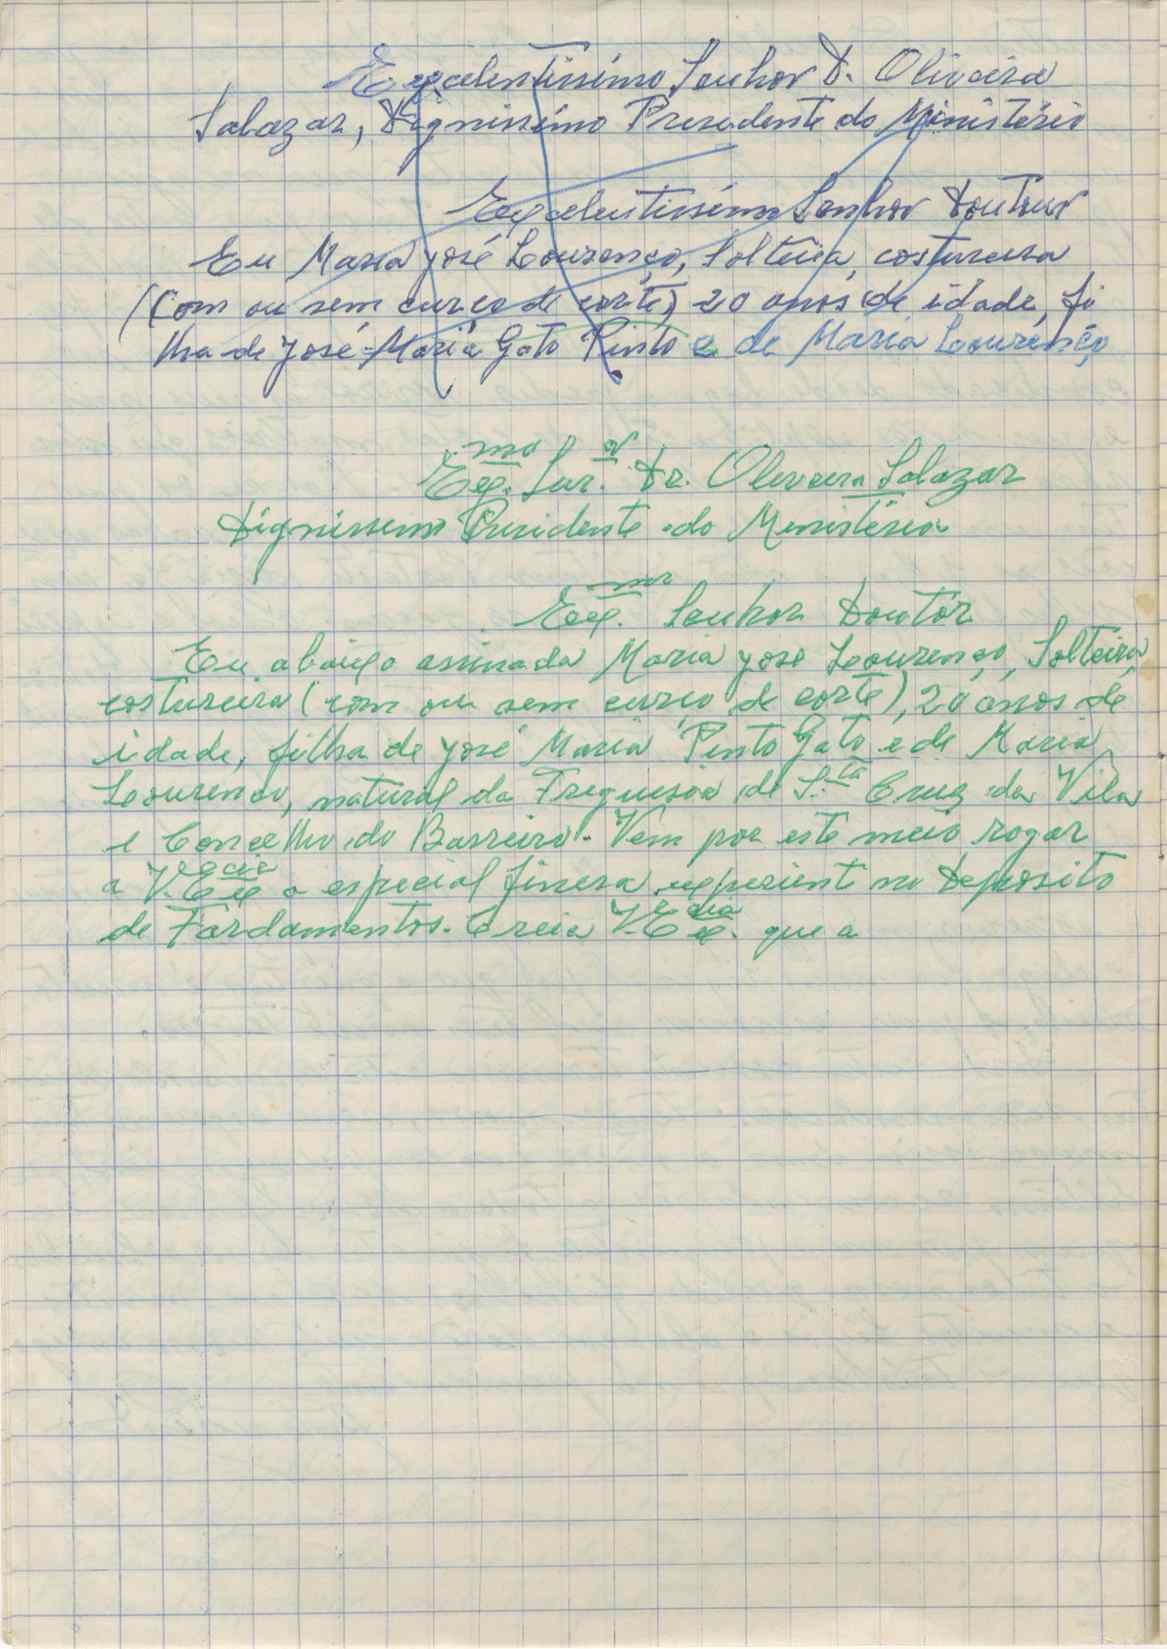 Exxcelentissimo Senhor D. Oliveira
Salazar, Dignissimo Presedente do Ministério
Excelentissimo Senhor Doutour
Eu Maria José Lourenço, Solteira, costureira
(Com ou sem curço de corte) 20 anos de idade, fi
lha de José Maria Gato Pinto e de Maria Lourenço
Exmo. Snr. Dr. Oliveira Salazar
Dignissemo Presidente do Menistério
Exmo. Senhor Doutor
Eu abaixo assinada Maria José Lourenço, Solteira,
costureira (com ou sem curço de corte), 20 anos de
idade, filha de José Maria Pinto Gato e de Maria
Lourenço, natural da Freguesia de S.ta Cruz da Vila
e Concelho do Barreiro. Vem por este meio rogar
a V. Excia a especial finesa no Deposito
de Fardamentos. Creia V. Excia. que a